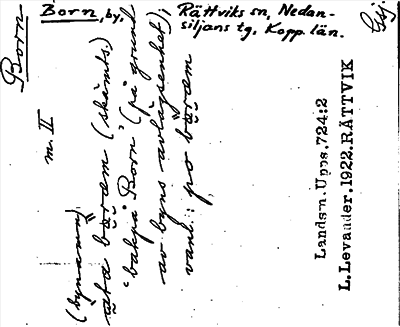 Born
Born, by, Rättviks sn, Nedan-
siljans tg, Kopp. län.
Gsj.
m. II
(bynamn)
bȯram (skämts.)
"bakpå Born" (på grund
av byns avlägsenhet);
vanl.: po bȯram
Landsm. Upps. 724:2
L. Levander. 1922. RÄTTVIK